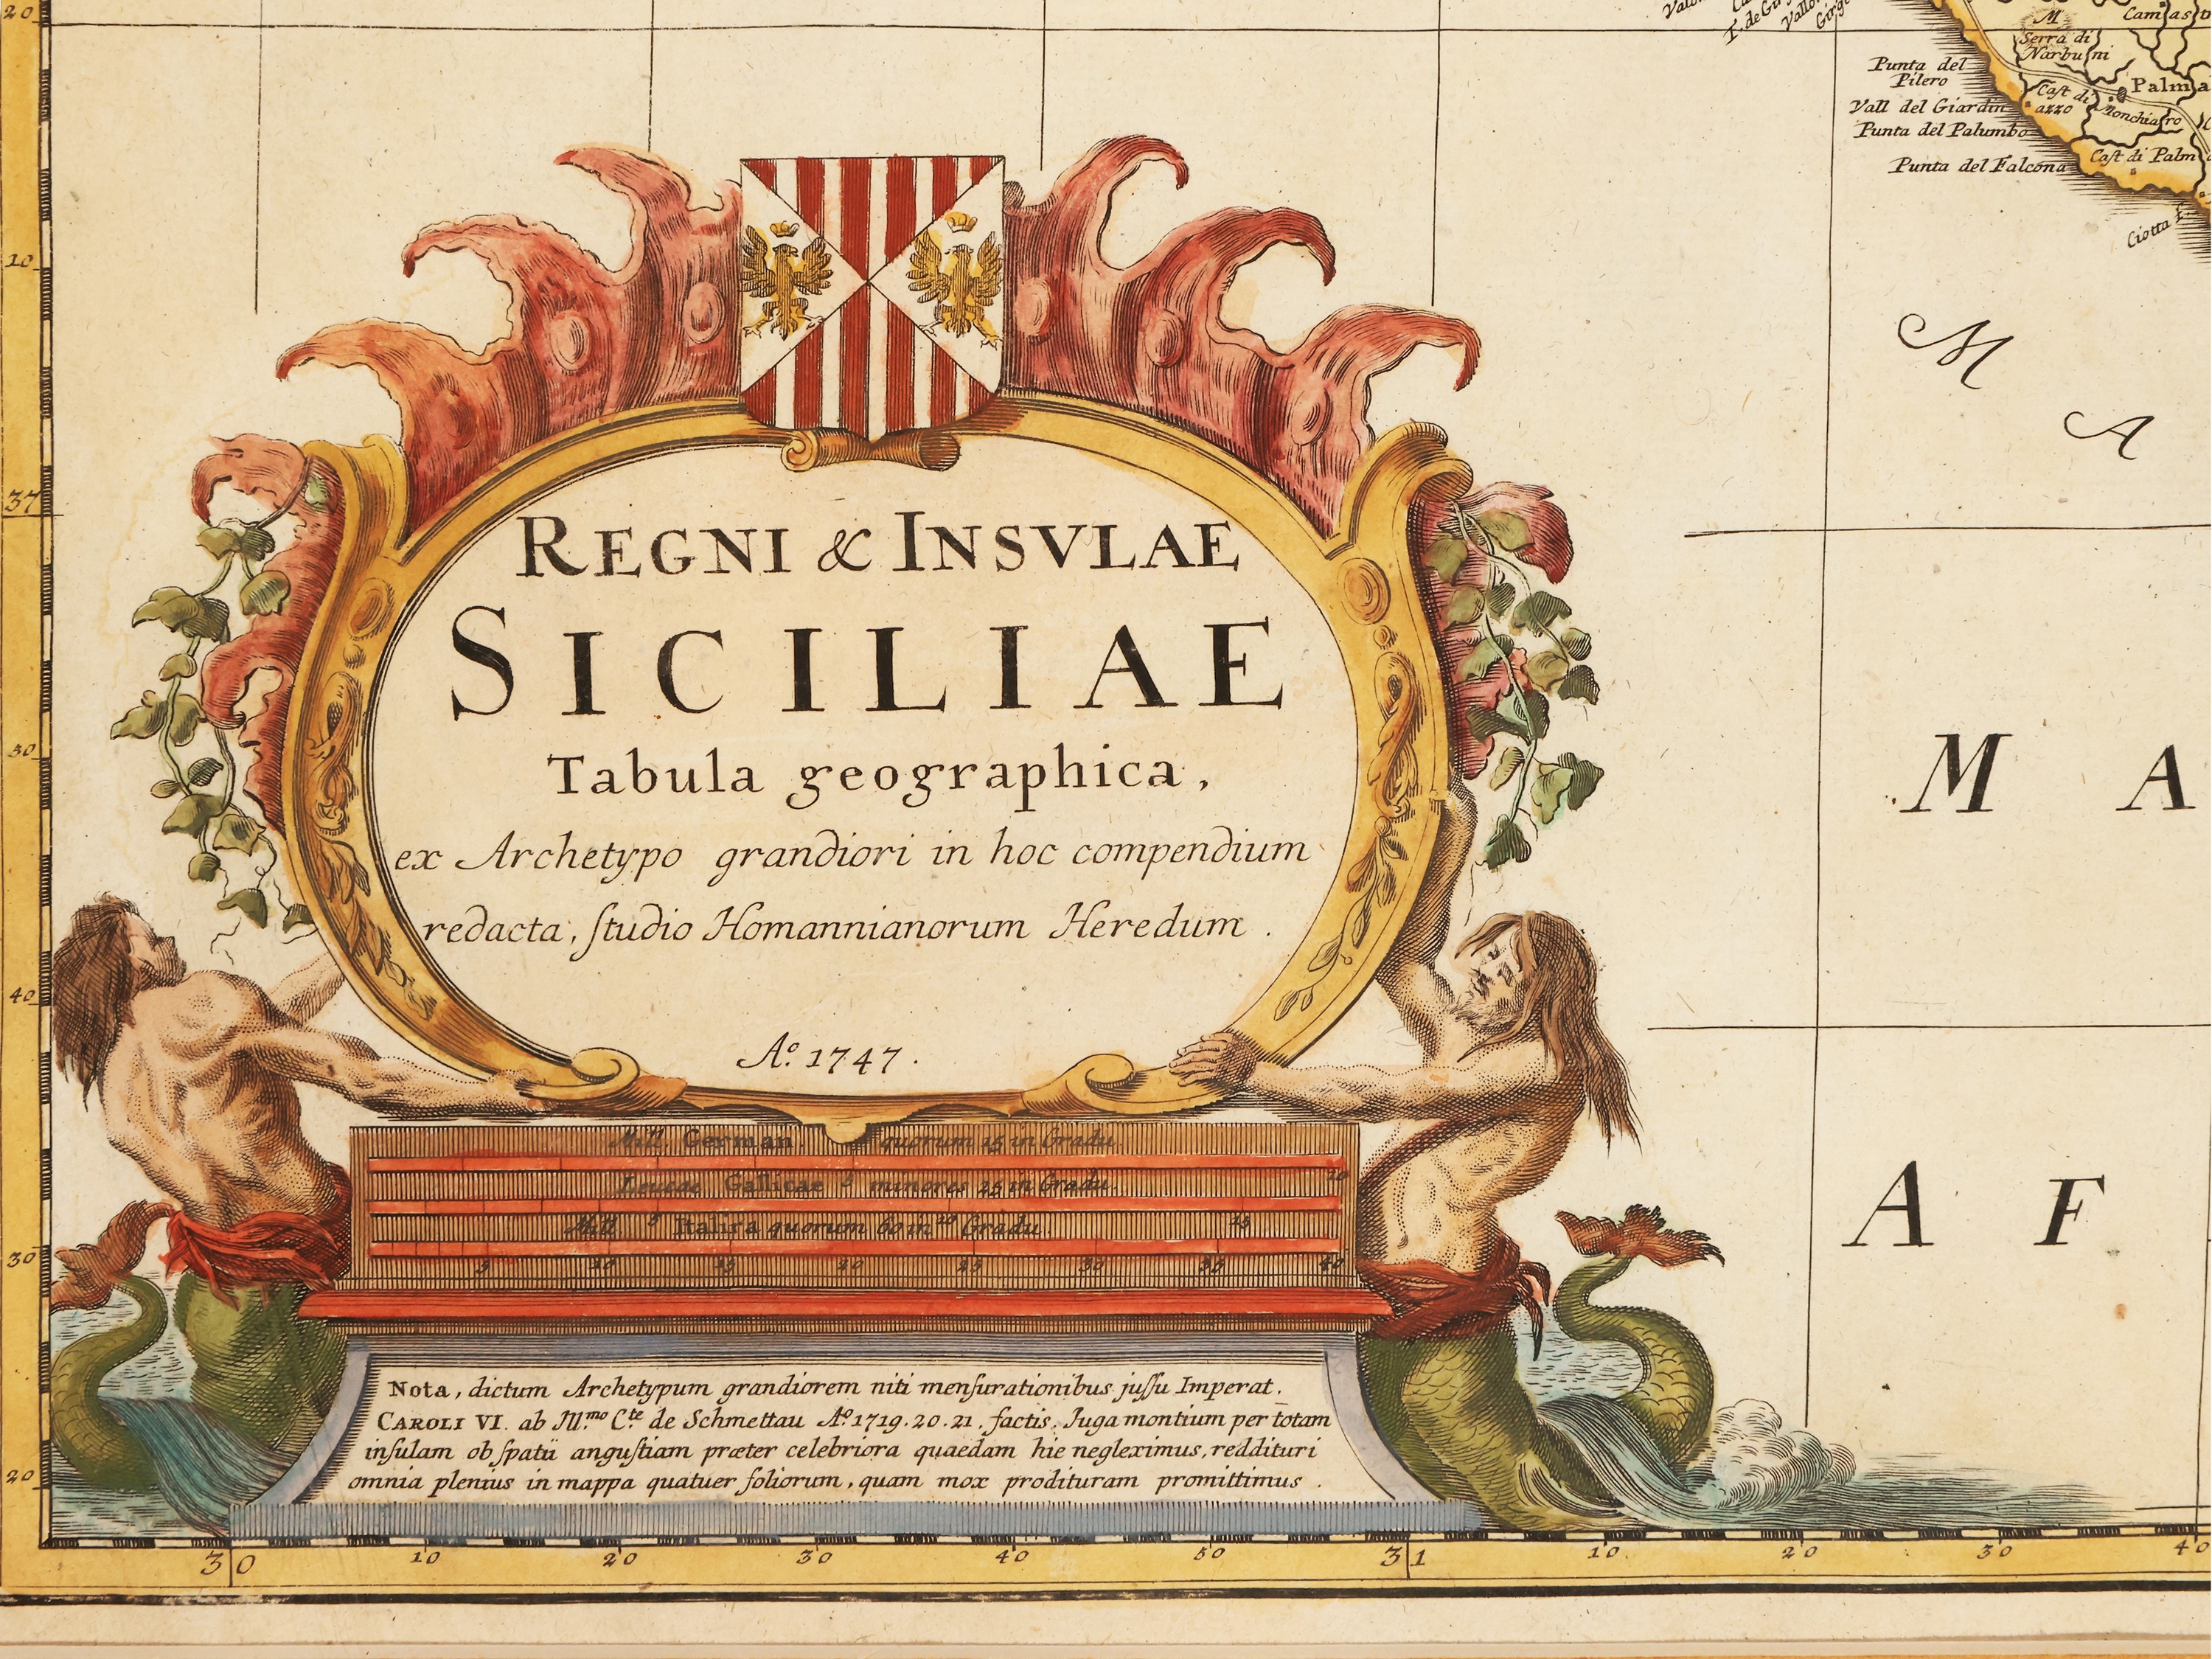 20
Camast
M
Serra di
Narbusni
Punta del
Pilero
Palma
Cast di
azzo
Monchiaro
Vall del Giardin
Punta del Palumbo
Cast di Palm
Punta del Falcona
Ciotta f.
10
M A
37
REGNI & INSVLAE
SICILIAE
Tabula geographica,
ex Archetypo grandiori in hoc compendium
redacta, ſtudio Homannianorum Heredum.
Aº. 1747.
50
M A
40
Mill. German. quorum 15 in Gradu.
10
Leucae Gallicae 5 minores 25 in Gradu.
A F
Mill. 5 Italica quorum 60 in 10 Gradu. 15
5 10 15 20 25 30 35 40
30
Nota, dictum Archetypum grandiorem niti menſurationibus juſſu Imperat.
CAROLI VI. ab Ill.mo Cte de Schmettau Aº 1719. 20. 21. factis. Iuga montium per totam
inſulam ob ſpatii anguſtiam præter celebriora quaedam hie negleximus, reddituri
omnia plenius in mappa quatuer foliorum, quam mox prodituram promittimus.
20
30 10 20 30 40 50 31 10 20 30 40